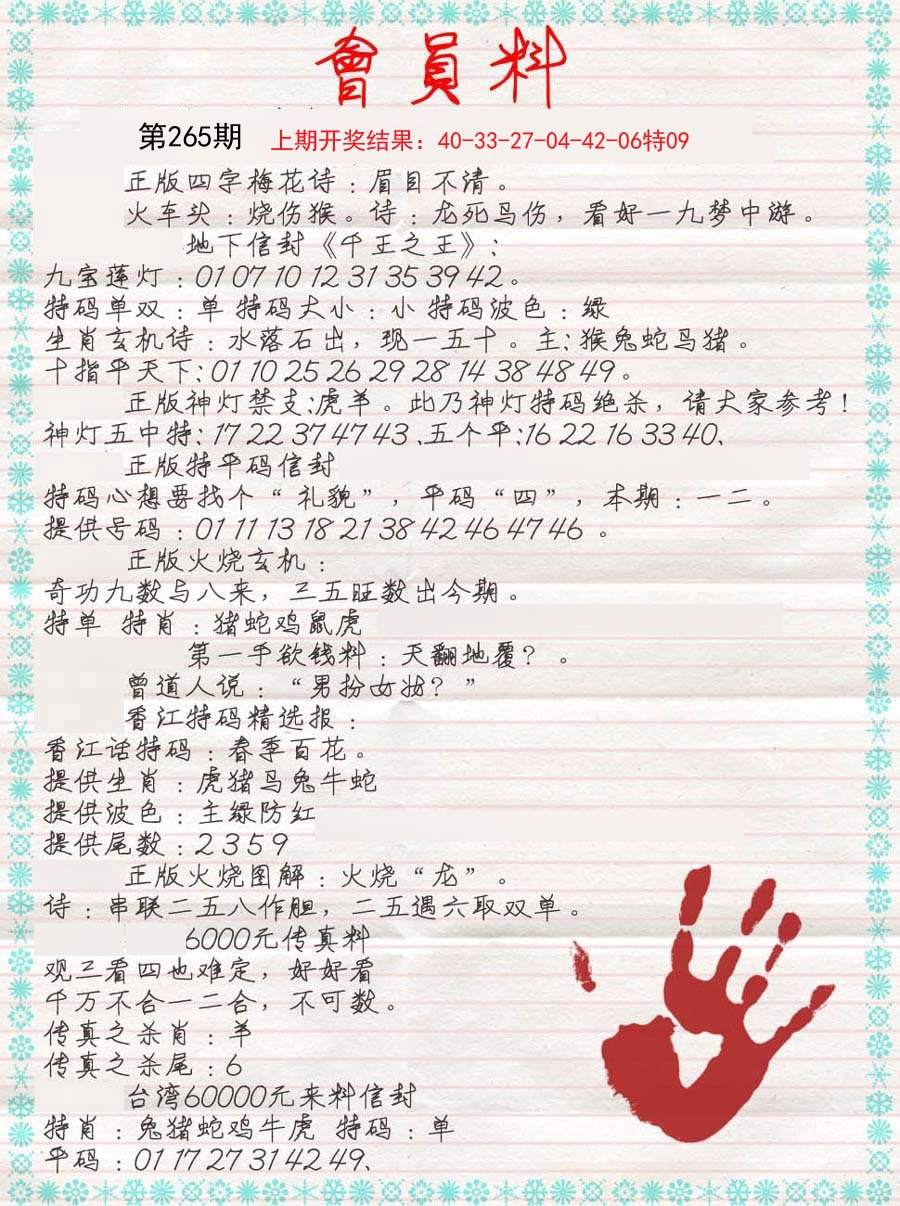 會員料
第265期 上期开奖结果：40-33-27-04-42-06特09
正版四字梅花诗：眉目不清。
火车头：烧伤猴。诗：龙死鸟伤，看好一九梦中游。
地下信封《千王之王》：
九宝莲灯：01 07 10 12 31 35 39 42。
特码单双：单 特码大小：小 特码波色：绿
生肖玄机诗：水落石出，现一五十。主：猴兔蛇鸟猪。
十指平天下：01 10 25 26 29 28 14 38 48 49。
正版神灯禁支：虎羊。此乃神灯特码绝杀，请大家参考！
神灯五中特：17 22 37 47 43、五个平：16 22 16 33 40、
正版特平码信封
特码心想要找个“礼貌”，平码“四”，本期：一二。
提供号码：01 11 13 18 21 38 42 46 47 46 。
正版火烧玄机：
奇功九数与八来，三五旺数出今期。
特单 特肖：猪蛇鸡鼠虎
第一手欲钱料：天翻地覆？。
曾道人说：“男扮女妆？”
香江特码精选报：
香江话特码：春季百花。
提供生肖：虎猪马兔牛蛇
提供波色：主绿防红
提供尾数：2 3 5 9
正版火烧图解：火烧“龙”。
诗：串联二五八作胆，二五遇六取双单。
6000元传真料
观三看四也难定，好好看
千万不合一二合，不可数。
传真之杀肖：羊
传真之杀尾：6
台湾60000元来料信封
特肖：兔猪蛇鸡牛虎 特码：单
平码：01 17 27 31 42 49、